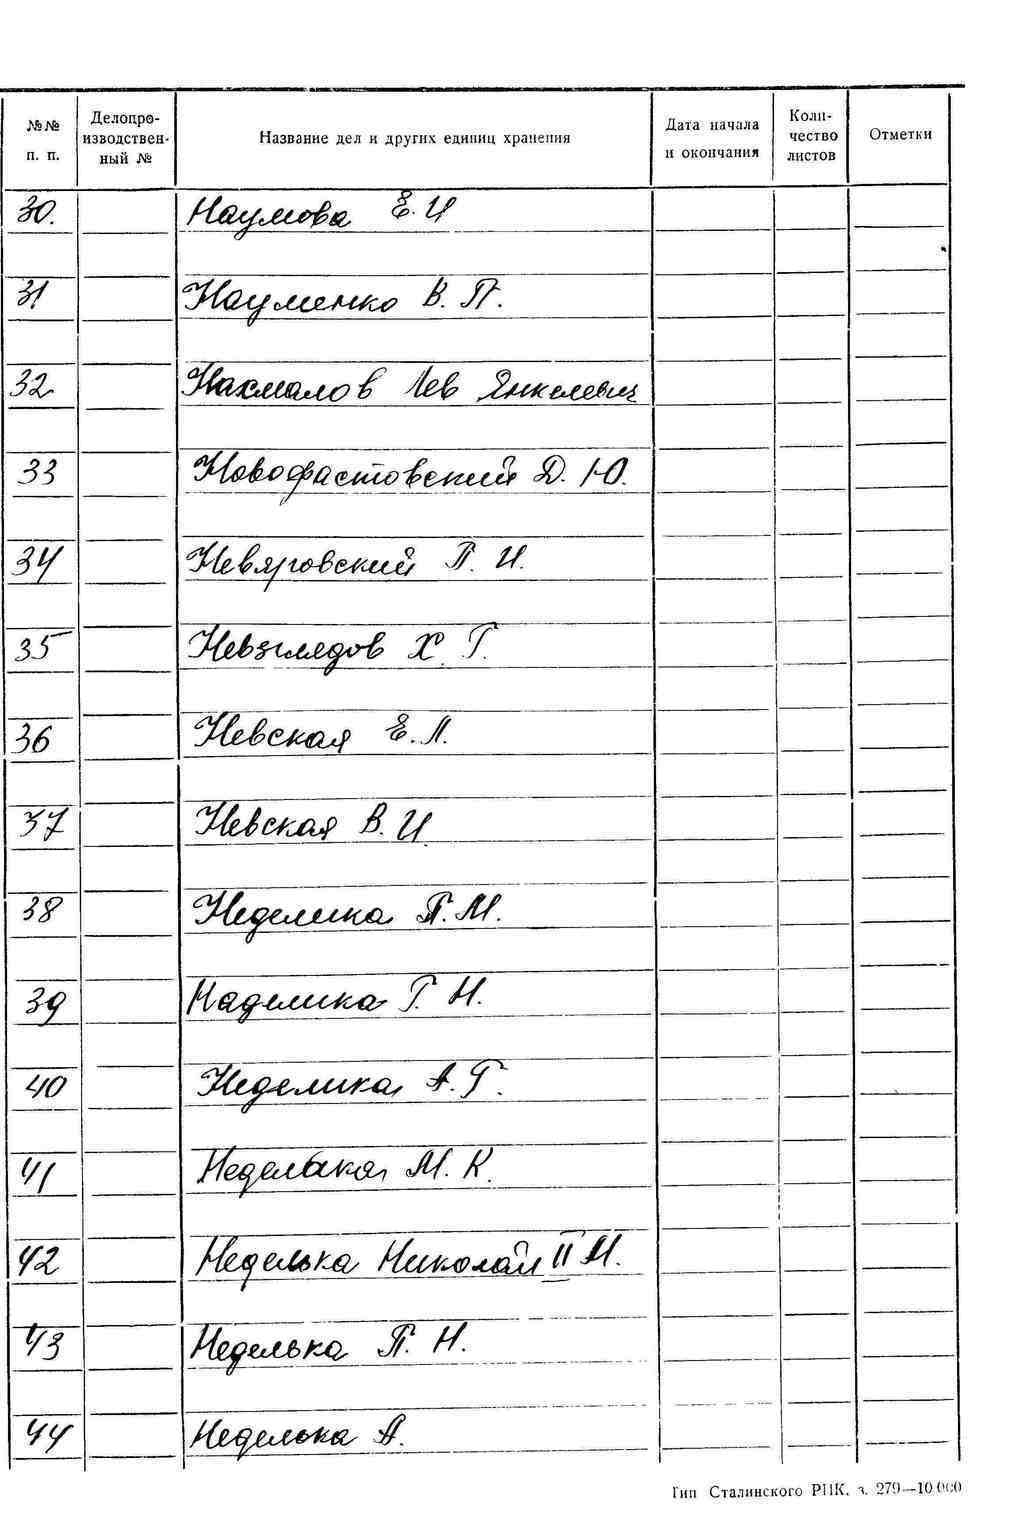 №№ п. п. Делопроизводственный № Название дел и других единиц хранения Дата начала и окончания Количество листов Отметки
30. Наумова Е. И
31 Науменко В. П.
32 Нахмалов Лев Янкелевич
33 Новофастовский Д. Ю.
34 Невяровский П. И.
35 Невзглядов Х. Г.
36 Невская Е. Л.
37 Невская В. И.
38 Неделика П. М.
39 Наделика Г. Н.
40 Неделика А. Г.
41 Неделька М. К.
42 Неделька Николай II М.
43 Неделька П. Н.
44 Неделька А.
Тип Сталинского РИК. з. 279—10.000